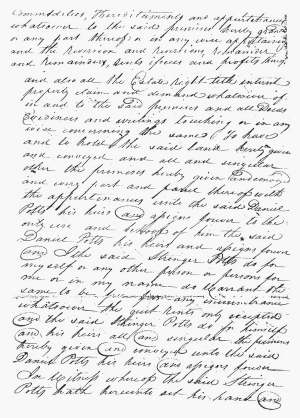 Commodities, Hereditaments and appurtenances
whatsoever to the said premises hereby granted
or any part thereof or in any wise appertaining
and the reversion and reversions remainder
and remainders, rents issues and profits thereof
and also all the Estate right title interest
property claim and demand whatsoever of
in and to the said premises and all Deeds
Evidences and writings touching or in any
wise concerning the same To have
and to hold the said land hereby given
and conveyed and all and singular
other the premises hereby given
and every part and parcel thereof with
the appurtenances unto the said Daniel
Potts his heirs and assigns forever to the
only use and behoof of him the said
Daniel Potts his heirs and assigns forever
and I the said Stringer Potts do for
myself or any other person or persons for
me or in my name do Warrant the
same to be from any
whatsoever the quit rents only excepted
and the said Stringer Potts do for himself
and his heirs all and singular the premises
hereby given and conveyed unto the said
Daniel Potts his heirs and assigns forever
In Witness whereof the said Stringer
Potts hath hereunto set his hand and